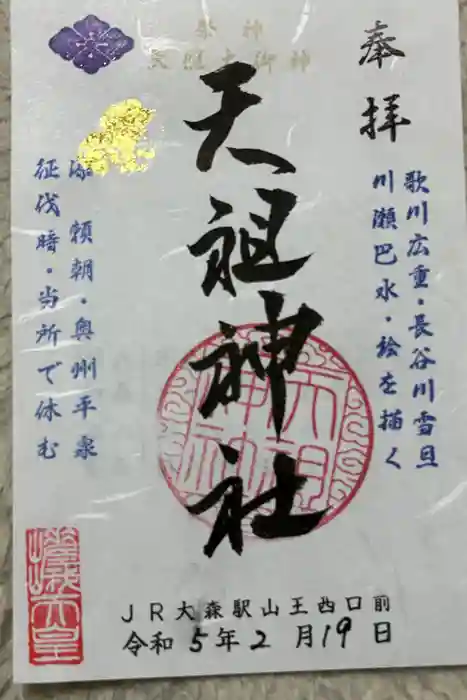 奉拝
歌川広重・長谷川雪旦
川瀬巴水・絵を描く
祭神
天照大御神
天祖神社
天祖神社
源頼朝・奥州平泉
征伐時・当所で休む
JR大森駅山王西口前
令和5年2月19日